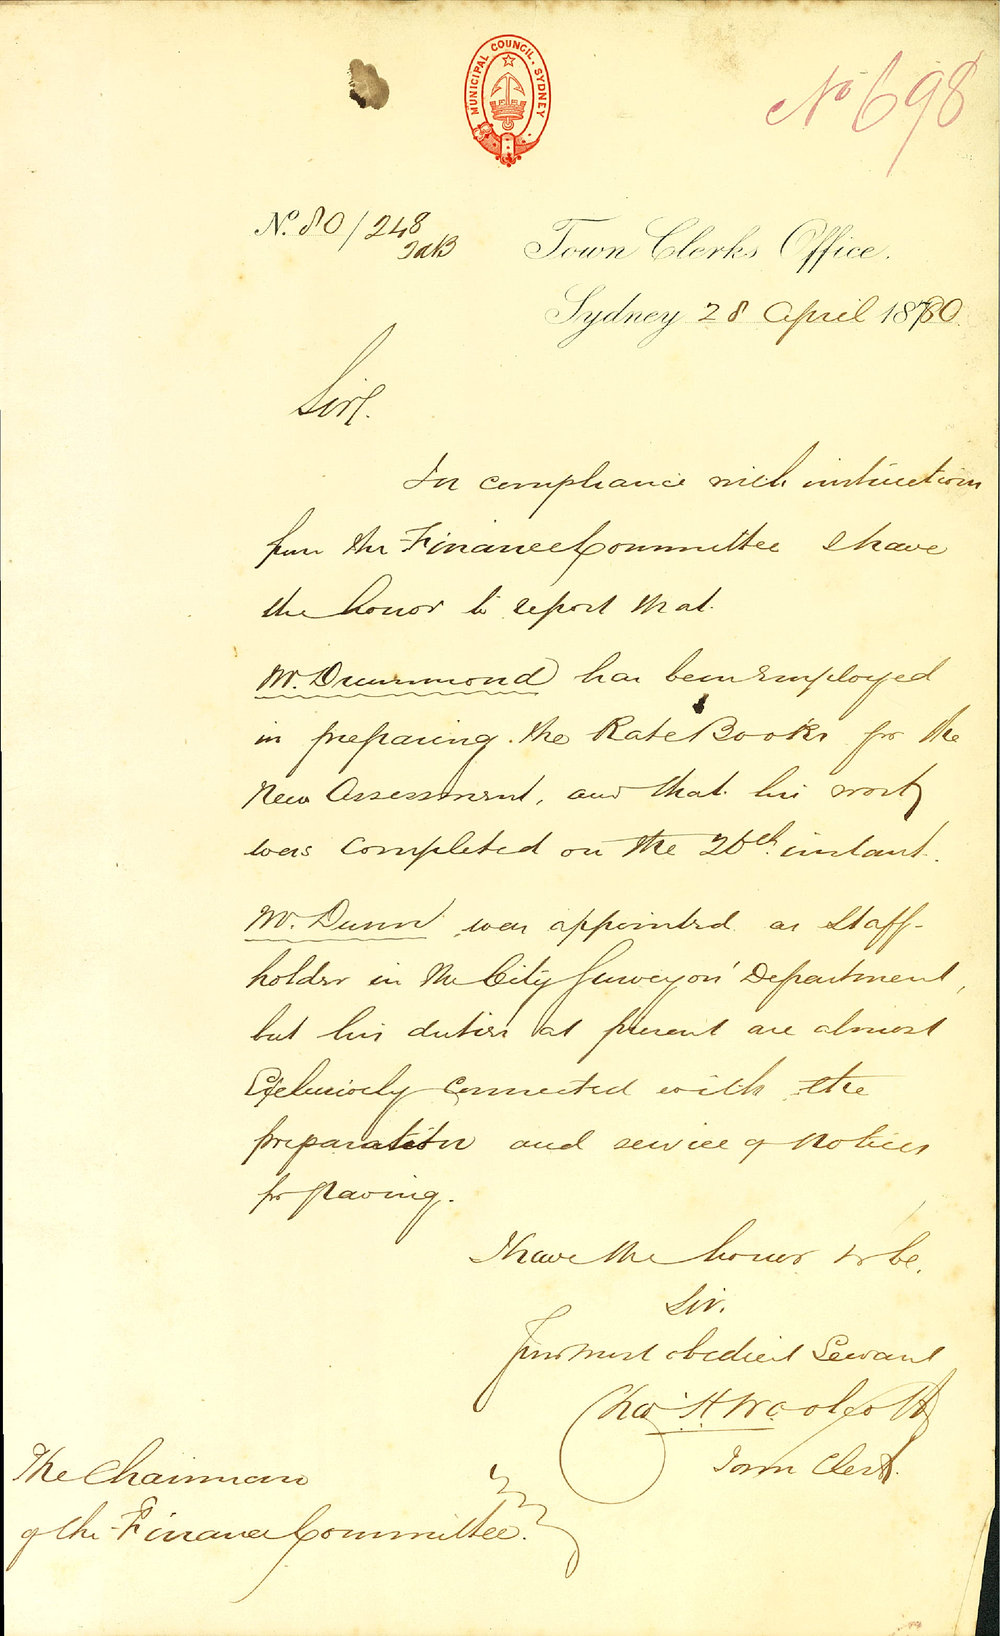 MUNICIPAL COUNCIL. SYDNEY
No 698
No. 80/248
Town Clerks Office.
Sydney 28 April 1880.
Sir,
In compliance with instructions
from the Finance Committee I have
the honor to report that
Mr. Drummond has been employed
in preparing the Rate Books for the
New Assessment, and that his work
was completed on the 26th. instant.
Mr. Dunn was appointed as Staff-
holder in the City Surveyors' Department,
but his duties at present are almost
Exclusively connected with the
preparation and service of Notices
for paving.
I have the honor to be,
Sir,
Your most obedient Servant
Chas. H. Woolcott
Town Clerk.
The Chairman
of the Finance Committee.